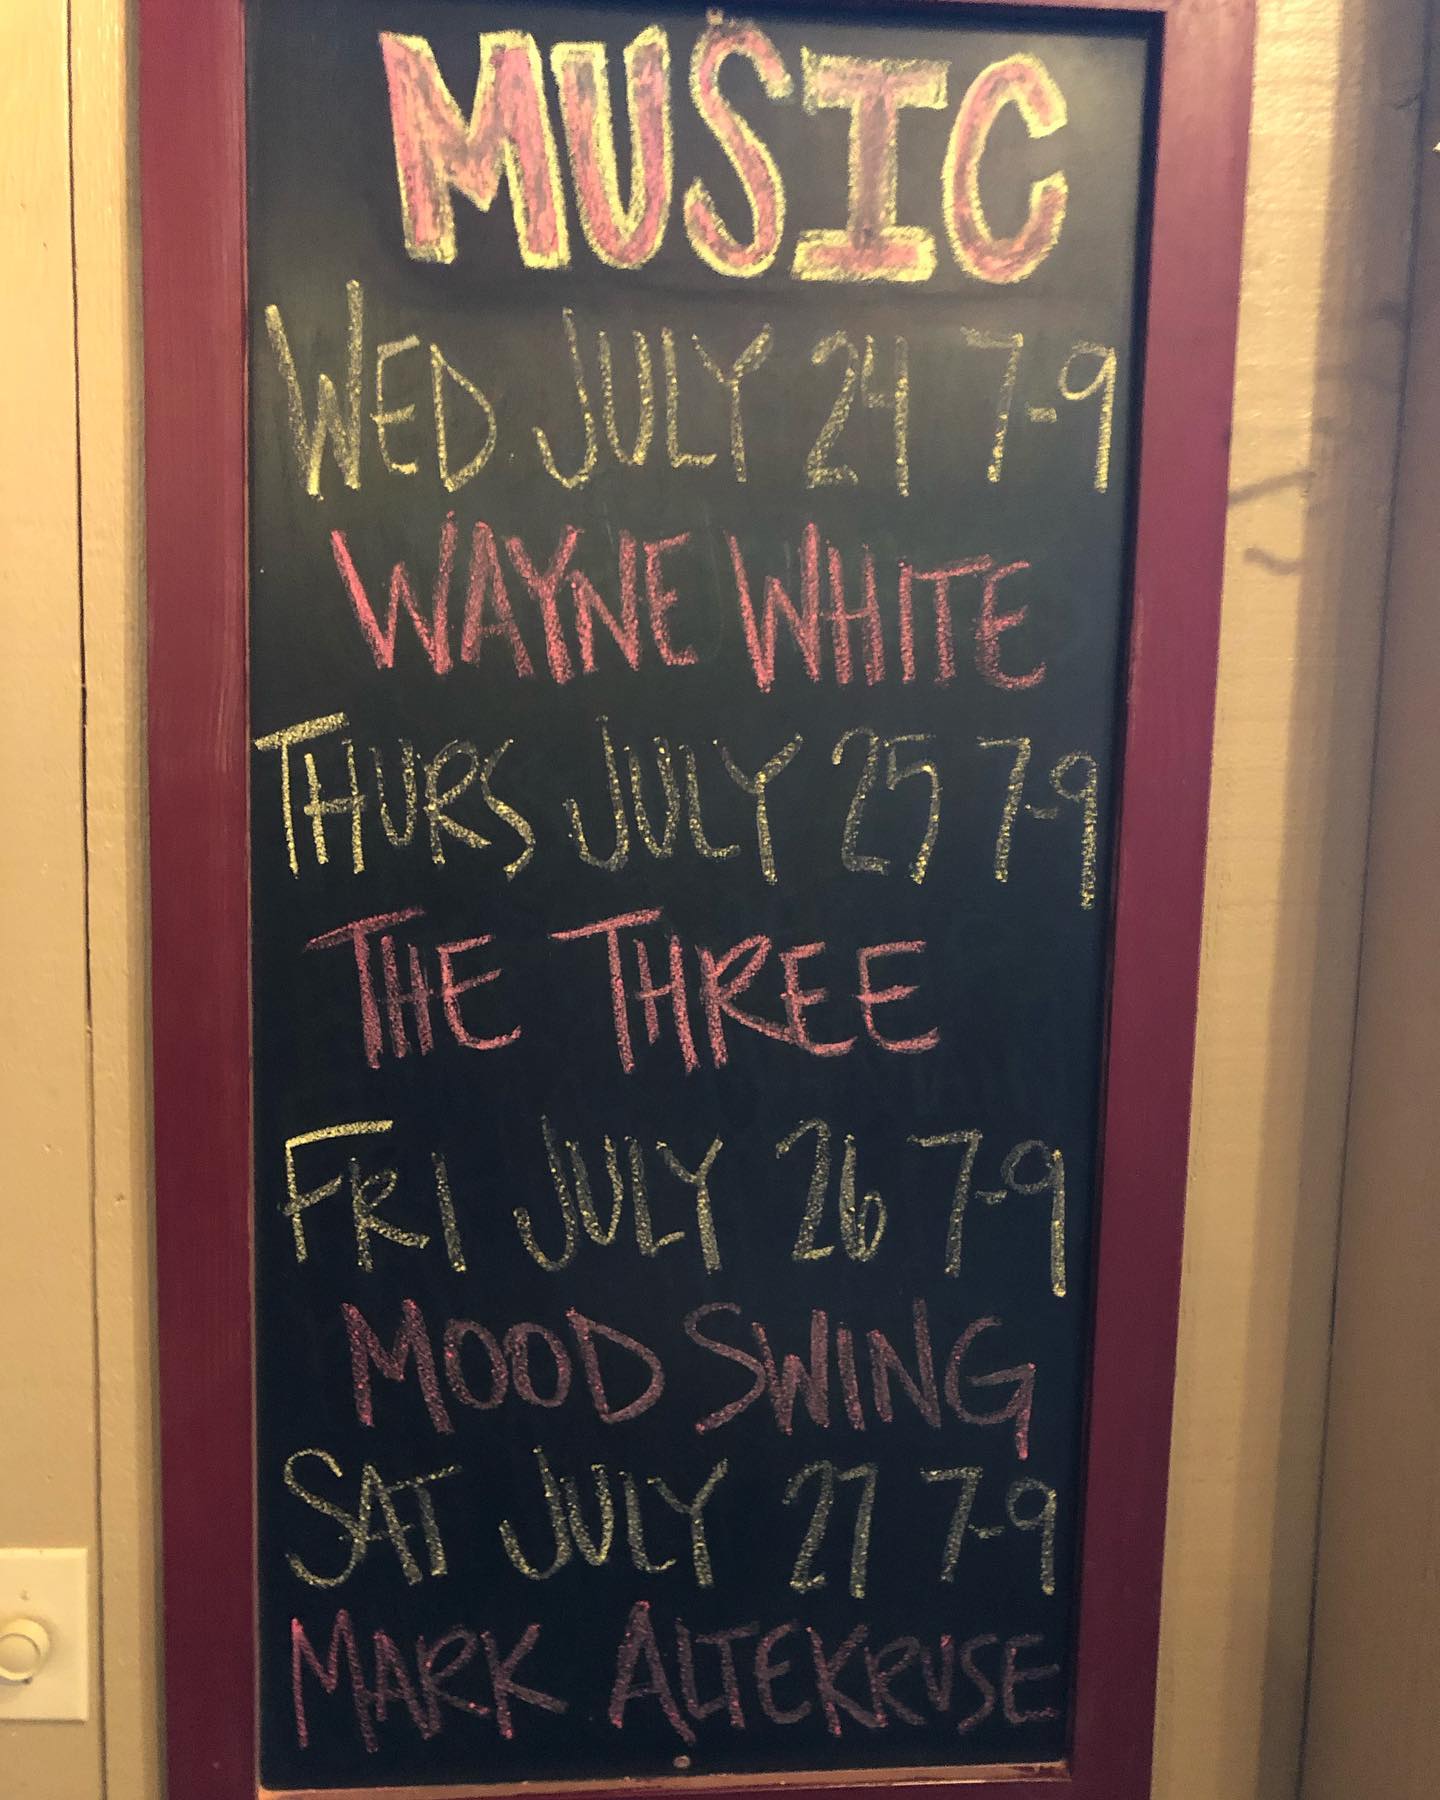 MUSIC
WED JULY 24 7-9
WAYNE WHITE
THURS JULY 25 7-9
THE THREE
FRI JULY 26 7-9
MOOD SWING
SAT JULY 27 7-9
MARK ALTEKRUSE